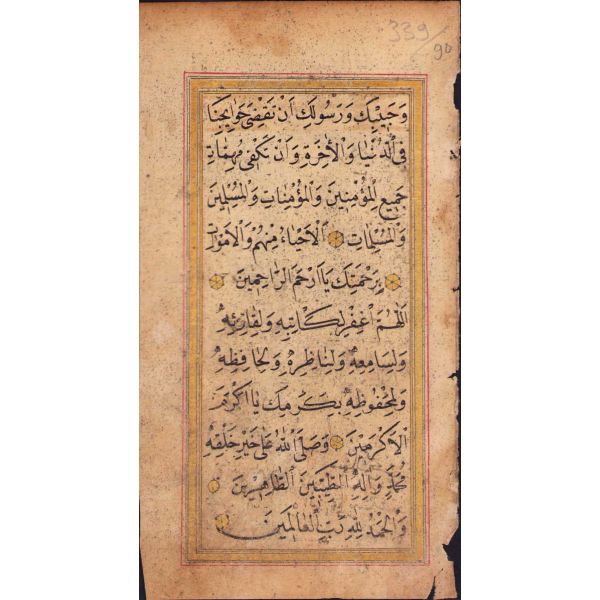 339/90
وَحَبِيبِكَ وَرَسُولِكَ اَنْ تَقْضِىَ حَوَايِجَنَا
فِى الدُّنْيَا وَالْاٰخِرَةِ وَاَنْ تَكْفِىَ مُهِمَّاتِ
جَمِيعِ الْمُؤْمِنِينَ وَالْمُؤْمِنَاتِ وَالْمُسْلِمِينَ
وَالْمُسْلِمَاتِ الْاَحْيَاءِ مِنْهُمْ وَالْاَمْوَاتِ
بِرَحْمَتِكَ يَا اَرْحَمَ الرَّاحِمِينَ
اَللّٰهُمَّ اغْفِرْ لِكَاتِبِهِ وَلِقَارِئِهِ
وَلِسَامِعِهِ وَلِنَاظِرِهِ وَلِحَافِظِهِ
وَلِمَحْفُوظِهِ بِكَرَمِكَ يَا اَكْرَمَ
الْاَكْرَمِينَ وَصَلَّى اللّٰهُ عَلٰى خَيْرِ خَلْقِهِ
مُحَمَّدٍ وَاٰلِهِ الطَّيِّبِينَ الطَّاهِرِينَ
وَالْحَمْدُ لِلّٰهِ رَبِّ الْعَالَمِينَ